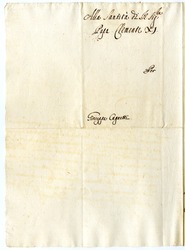 Alla Santità di N. Sig.re
Papa Clemente XI
Per
Giuseppe